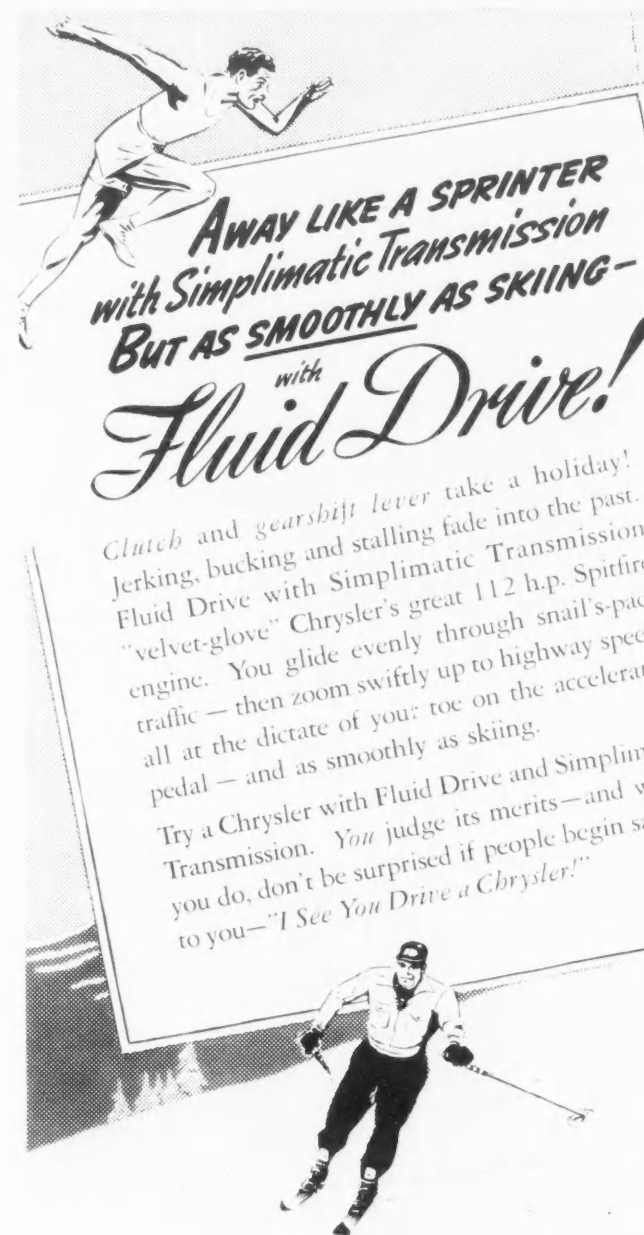 AWAY LIKE A SPRINTER
with Simplimatic Transmission
BUT AS SMOOTHLY AS SKIING—
with
Fluid Drive!
Clutch and gearshift lever take a holiday!
Jerking, bucking and stalling fade into the past.
Fluid Drive with Simplimatic Transmission
"velvet-glove" Chrysler's great 112 h.p. Spitfire
engine. You glide evenly through snail's-pac
traffic — then zoom swiftly up to highway spee
all at the dictate of your toe on the accelerat
pedal — and as smoothly as skiing.
Try a Chrysler with Fluid Drive and Simplim
Transmission. You judge its merits—and w
you do, don't be surprised if people begin s
to you—"I See You Drive a Chrysler!"